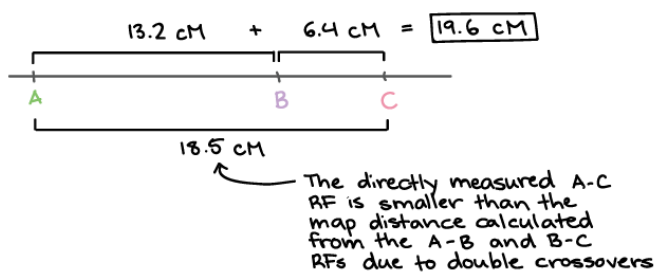 13.2 cM + 6.4 cM = 19.6 cM
A B C
18.5 cM
The directly measured A-C
RF is smaller than the
map distance calculated
from the A-B and B-C
RFs due to double crossovers